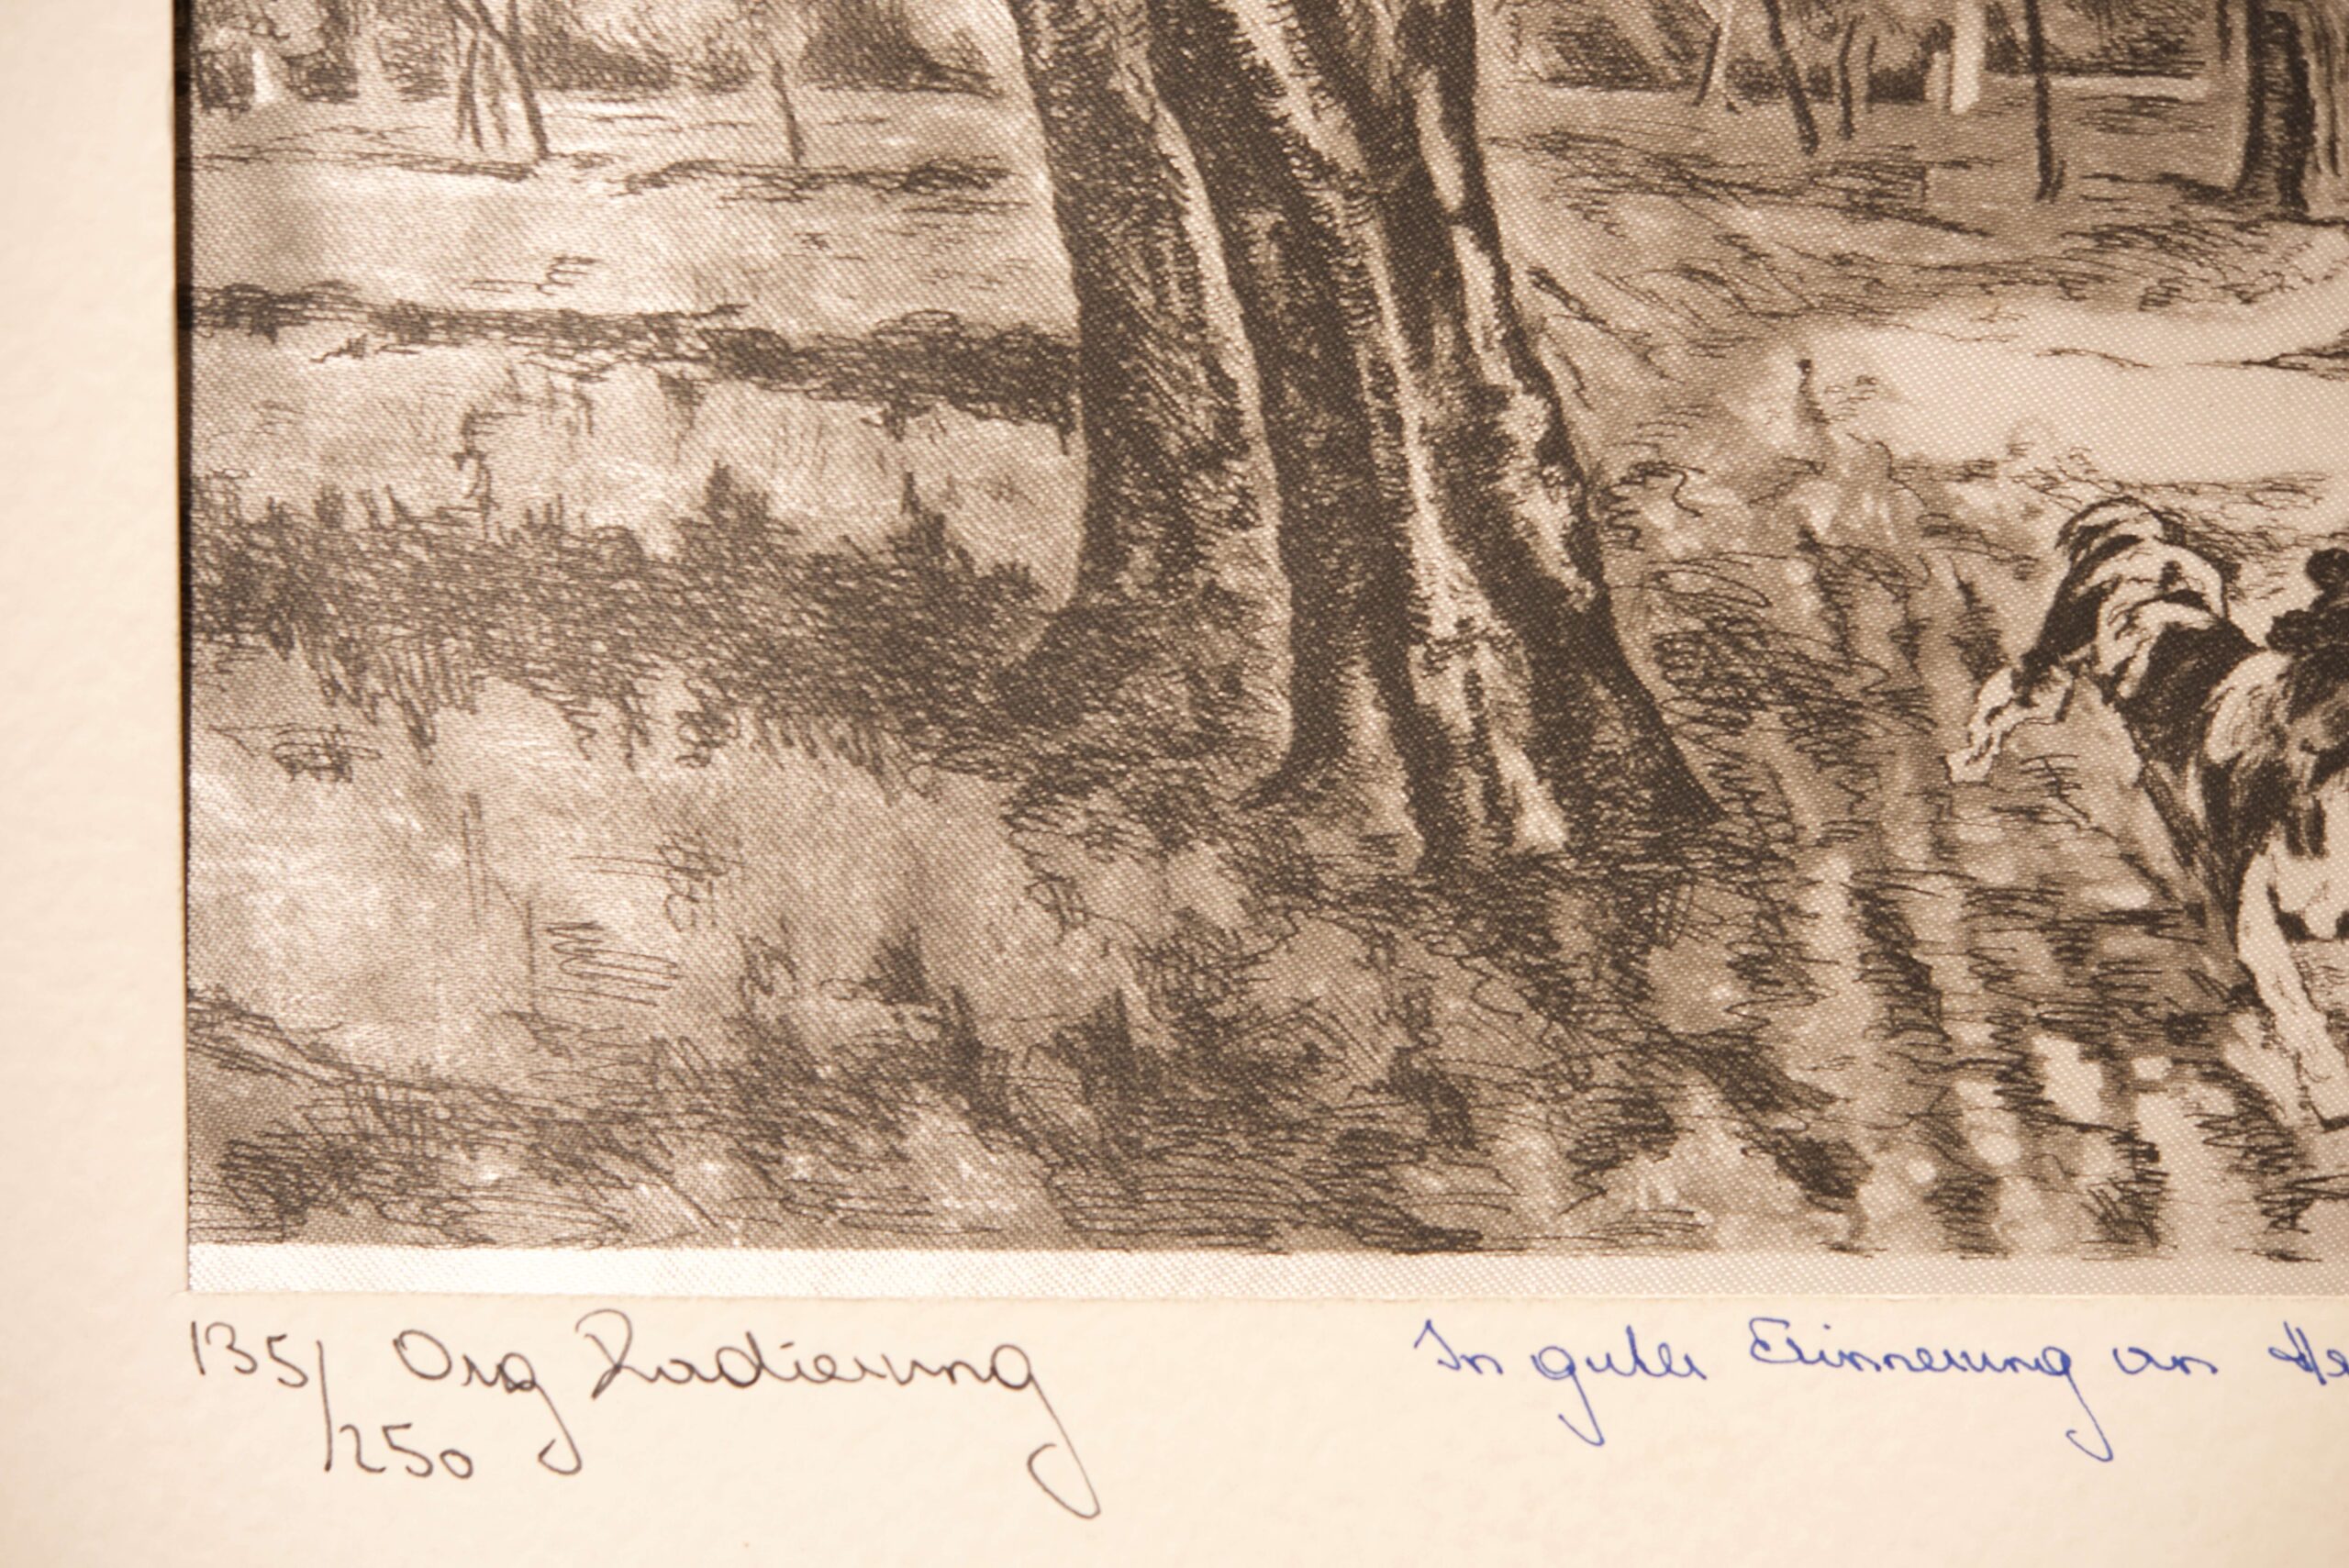 135/ Org Radierung
/250
In guter Erinnerung an He